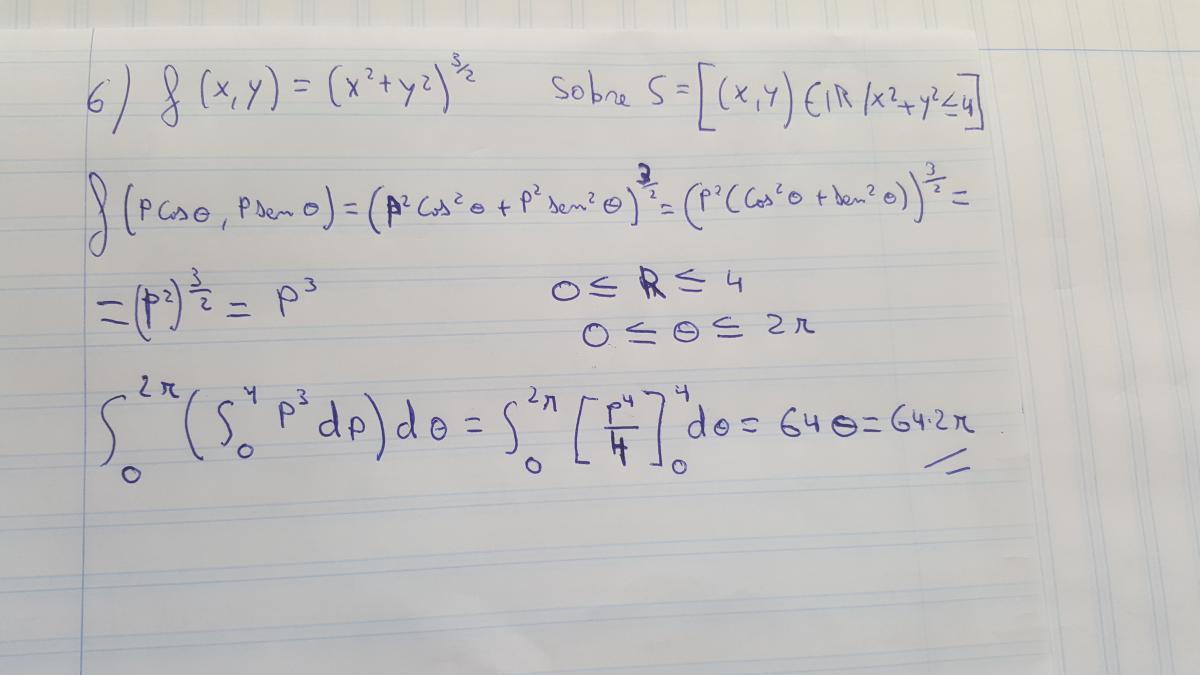 6) f(x,y) = (x²+y²)^3/2 Sobre S = [(x,y) ∈ IR / x²+y² ≤ 4]
f(ρ cos θ, ρ sen θ) = (ρ² cos² θ + ρ² sen² θ)^3/2 = (ρ² (cos² θ + sen² θ))^3/2 =
= (ρ²)^3/2 = ρ³ 0 ≤ R ≤ 4
0 ≤ θ ≤ 2π
∫₀^2π (∫₀^4 ρ³ dρ) dθ = ∫₀^2π [ρ⁴/4]₀^4 dθ = 64 θ = 64·2π